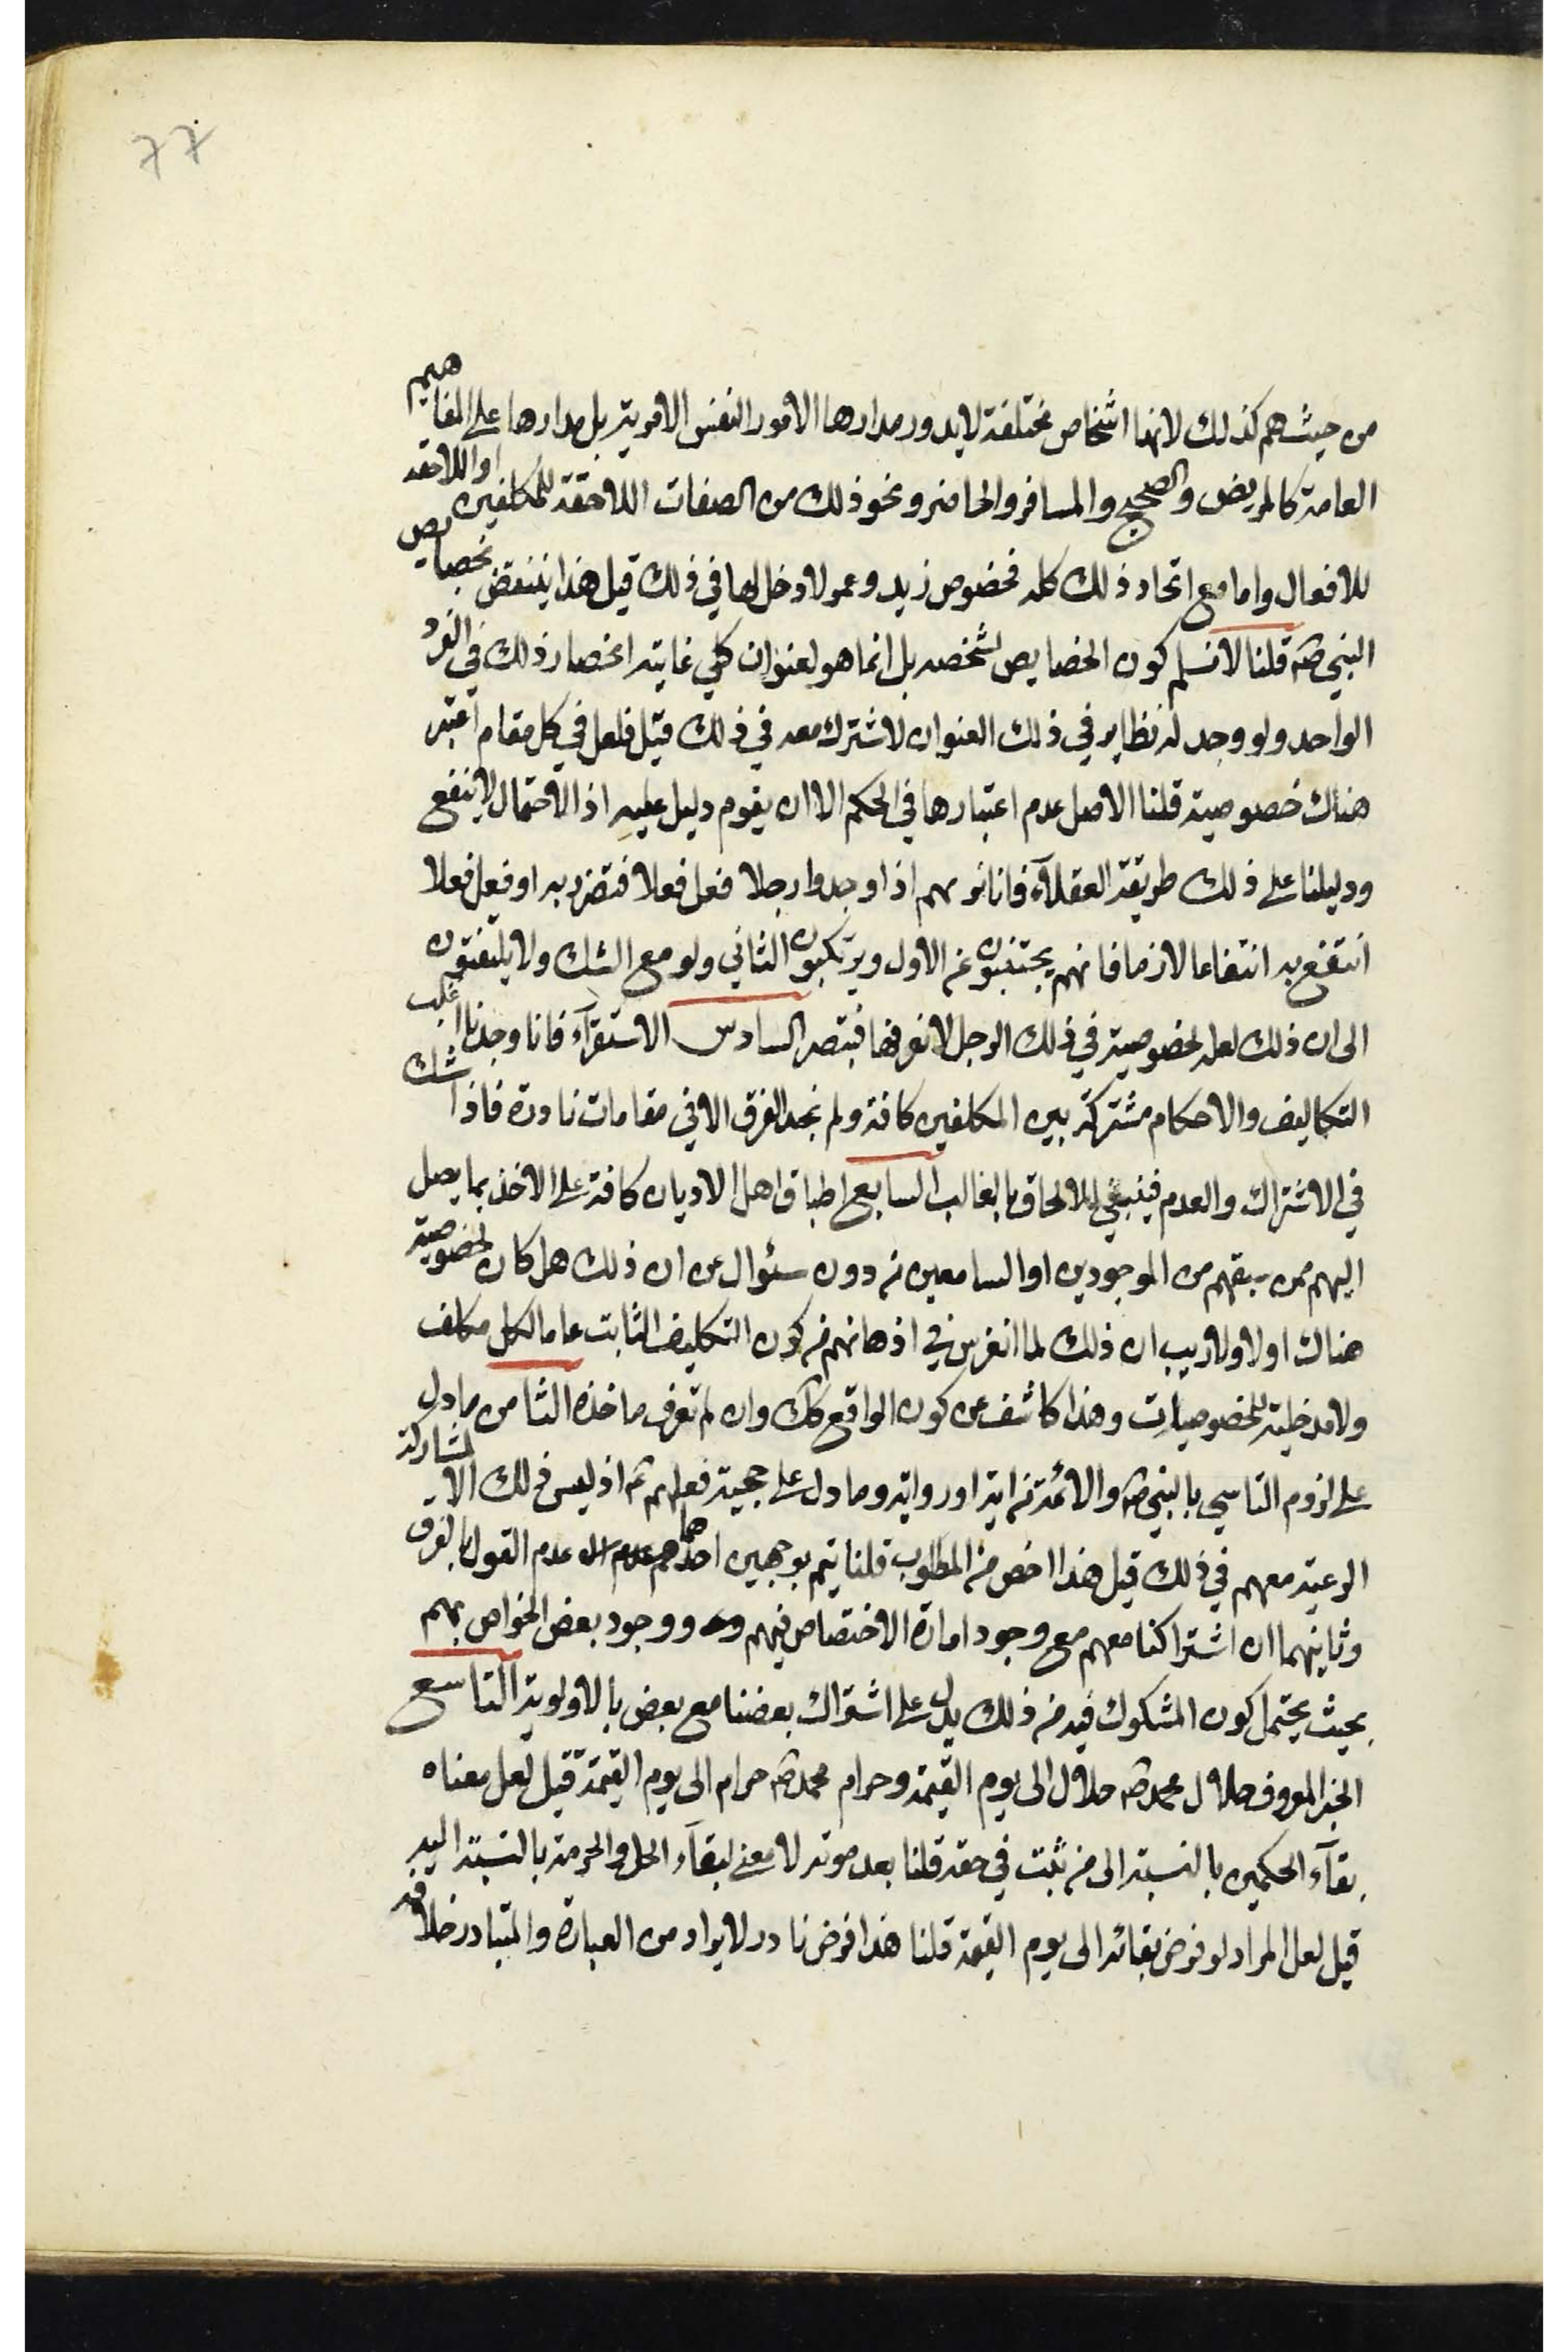 77
من حيث هم كذلك لانها اشخاص مختلفة لا يدور مدارها الامور النفس الامرية بل مدارها على المفاهيم
العامة كالمريض والصحيح والمسافر والحاضر ونحو ذلك من الصفات اللاحقة للمكلفين او اللاحقه
للافعال واما مع اتحاد ذلك كله فخصوص زيد وعمر لا دخل لها في ذلك قيل هذا ينتقض بخصايص
النبي ص قلنا لا نسلم كون الخصايص لشخصه بل انما هو لعنوان كلي غايته انحصار ذلك في الفرد
الواحد ولو وجد له نظاير في ذلك العنوان لاشترك معه في ذلك قيل فلعل في كل مقام اعتبر
هناك خصوصية قلنا الاصل عدم اعتبارها في الحكم الا ان يقوم دليل عليه اذ الاحتمال لا ينفع
ودليلنا على ذلك طريقة العقلاء فانا نريهم اذا وجدوا رجلا فعل فعلا فتضرر به او فعل فعلا
انتفع به انتفاعا لازما فانهم يجتنبون عن الاول ويرتكبون الثاني ولو مع الشك ولا يلتفتون
الى ان ذلك لعله لخصوصية في ذلك الرجل لا نعرفها فتبصر السادس الاستقرآء فانا وجدنا اغلب
التكاليف والاحكام مشتركة بين المكلفين كافة ولم نجد الفرق الا في مقامات نادرة فاذا شك
في الاشتراك والعدم فينبغي الالحاق بالغالب السابع اطباق اهل الاديان كافة على الاخذ بما يصل
اليهم ممن سبقهم من الموجودين او السامعين من دون سئوال عن ان ذلك هل كان لخصوصية
هناك او لا ولا ريب ان ذلك لما انغرس في اذهانهم من كون التكليف الثابت عاما لكل مكلف
ولا مدخلية للخصوصيات وهذا كاشف عن كون الواقع كك وان لم نعرف ماخذه الثامن ما دل
على لزوم التاسي بالنبي ص والائمة من اية او رواية وما دل على حجية فعلهم ع اذ ليس ذلك الا لمشاركة
الرعية معهم في ذلك قيل هذا اخص من المطلوب قلنا يتم بوجهين احدهما عدم القول بالفرق
وثانيهما ان اشتراكنا معهم مع وجود امارة الاختصاص فيهم ووجود بعض الخواص بهم
بحيث يحتمل كون المشكوك فيه من ذلك يدل على اشتراك بعضنا مع بعض بالاولوية التاسع
الخبر المعروف حلال محمد ص حلال الى يوم القيمة وحرام محمد ص حرام الى يوم القيمة قيل لعل معناه
بقآء الحكمين بالنسبة الى من ثبت في حقه قلنا بعد موته لا معنى لبقآء الحل والحرمة بالنسبة اليه
قيل لعل المراد لو فرض بقائه الى يوم القيمة قلنا هذا فرض نادر لا يراد من العبارة والمتبادر خلافه